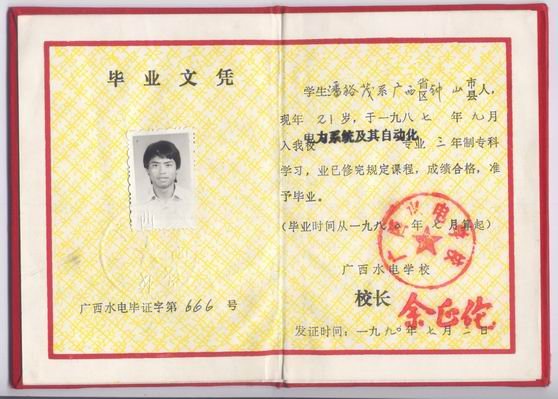 毕业文凭
广西水电毕证字第 666 号
学生潘裕茂系广西省区钟山市县人,
现年 21 岁,于一九八七年九月
入我校电力系统及其自动化专业三年制专科
学习,业已修完规定课程,成绩合格,准
予毕业。
(毕业时间从一九九〇年七月算起)
广西水电学校
校长 余正佗
发证时间:一九九〇年七月二日
广西水电学校